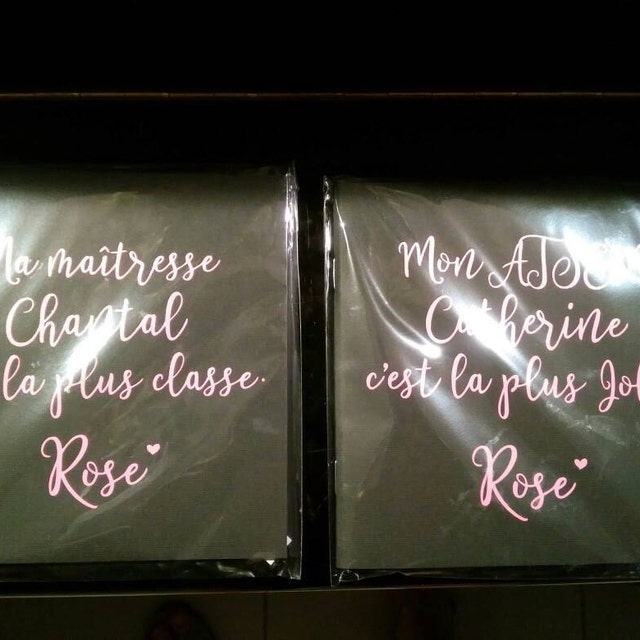 Ma maîtresse
Chantal
la plus classe.
Rose
Mon ATSEM
Catherine
c'est la plus
Rose